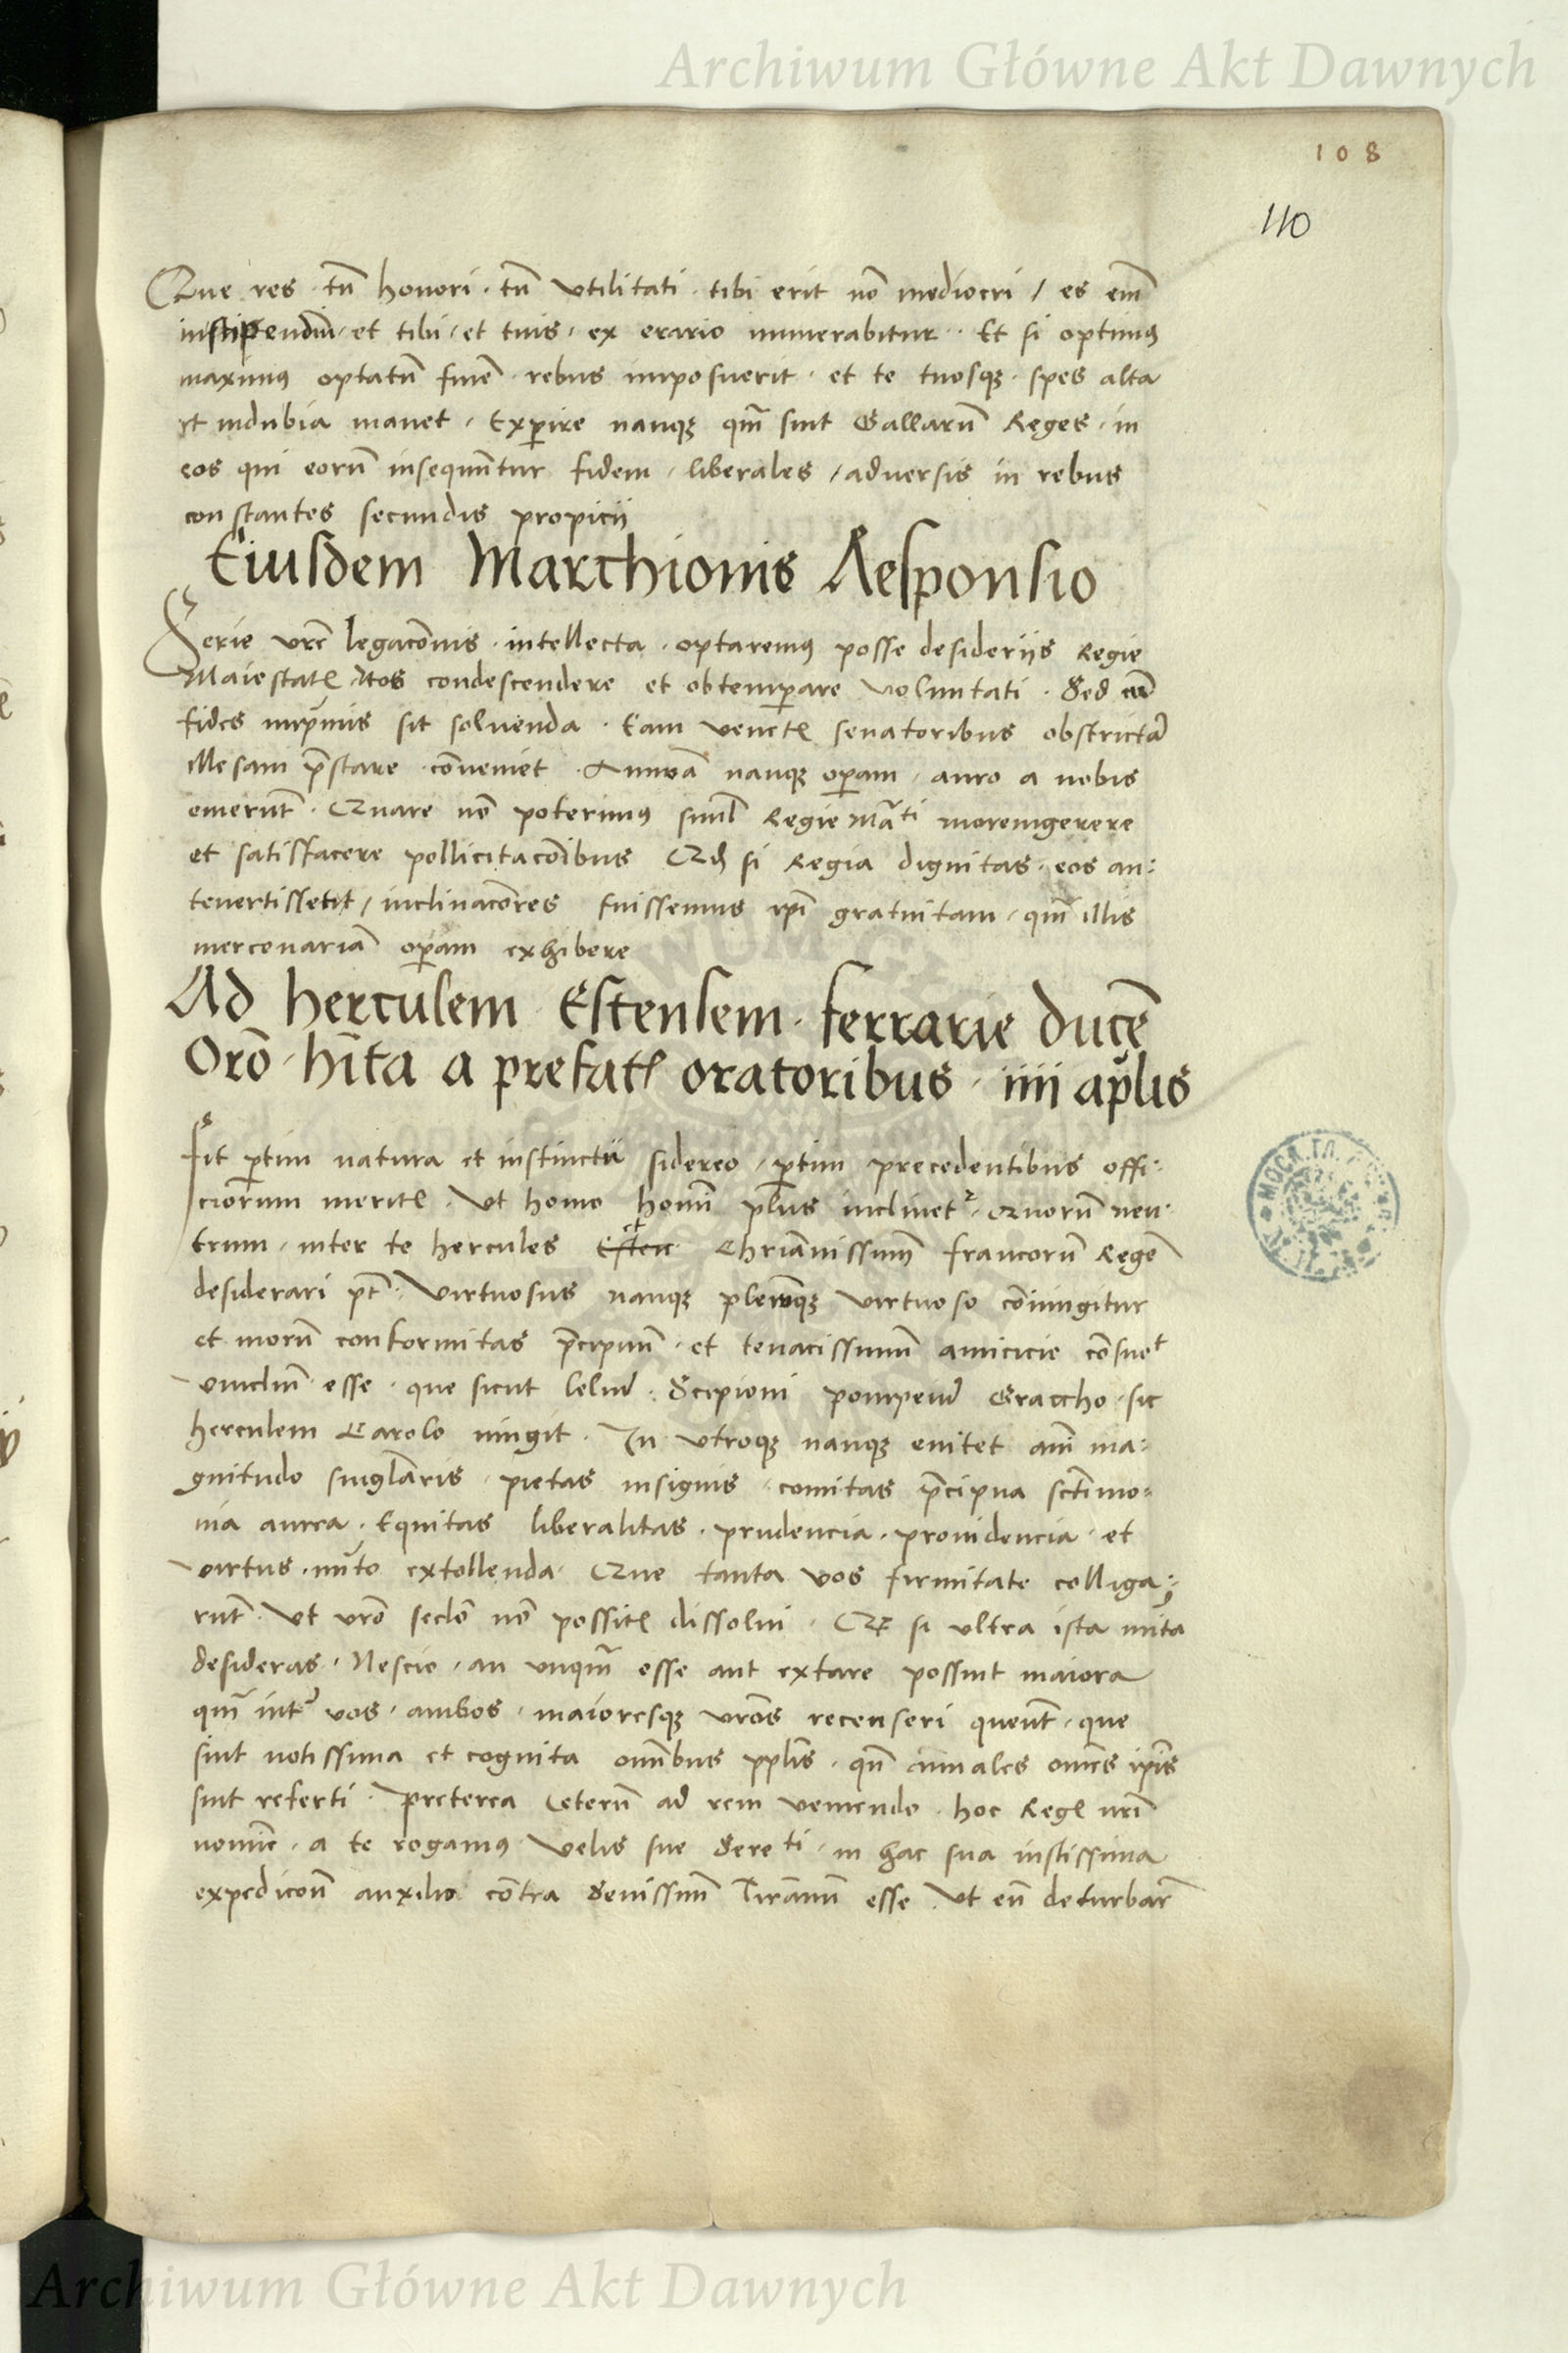 Archiwum Główne Akt Dawnych
108
110
Que res · tū honori · tū vtilitati · tibi erit nō mediocri / es em̄
instipendiū · et tibi · et tuis · ex erario numerabitur · Et si optimꝰ
maximꝰ optatū finē · rebus imposuerit · et te tuosqꝫ · spes alta
et indubia manet · Expire nanqꝫ qm̄ sint Gallarū Reges · in
eos qui eorū insequūtur fidem / liberales / aduersis in rebus
constantes secundis propicii
Eiusdem Marchionis Responsio
Serie vrē legacōnis · intellecta · optaremꝰ posse desiderijs Regie
Maiestatꝭ Nos condescendere et obtempare voluntati · Sed cū
fides inpͥmis sit soluenda · Eam venetꝭ senatoribus obstrictā
illesam p̄stare conueniet · Annuā nanqꝫ opam · auro a nobis
emerūt · Quare nō poterimꝰ simul Regie Māti moremgerere
et satisfacere pollicitacōibus Qđ si Regia dignitas · eos an:
teuertissetit / inclinacōres fuissemus ip̄i gratuitam / qm̄ illis
mercenariā opam exhibere
Ad herculem Estensem · ferrarie ducē
Orō · hīta a prefatꝭ oratoribus · iiii ap̄lis
Fit ptim natura et instinctu sidereo / ptim precedentibus offi:
ciorum meritꝭ · Vt homo homī plus inclinetr · Quorū neu
trum · inter te hercules Esten et Chrianissimū francorū Regē
desiderari pt̄ · Virtuosus nanqꝫ plerūqꝫ virtuoso cōiungitur
et morū conformitas p̄cipuū · et tenacissimū amicicie cōsuet
vinclm̄ esse · que sicut leliū · Scipioni pompeiū Graccho · sic
herculem Carolo iungit · In vtroqꝫ nanqꝫ enitet aīi ma:
gnitudo singlāris · pietas insignis · comitas p̄cipua sctīmo:
nia aurea · Equitas liberalitas · prudencia · prouidencia · et
virtus · mlto extollenda · Que tanta vos firmitate colliga:
rūt · Vt vrō seclo nō possitꝭ dissolui · Qđ si vltra ista mlta
desideras · Nescio · an vnqm̄ esse aut extare possint maiora
qm̄ int vos · ambos · maioresqꝫ vrōs recenseri queūt · que
sint notissima et cognita omībus pplis · qn̄ annales omēs ipīs
sint referti · Preterea Ceterū ad rem veniendo · hoc Regꝭ nrī
nomīe · a te rogamꝰ velis sue Sereti · in hac sua iustissima
expedicōn auxilio cōtra Seuissimū Tirānū esse · Vt eū deturbar
Archiwum Główne Akt Dawnych